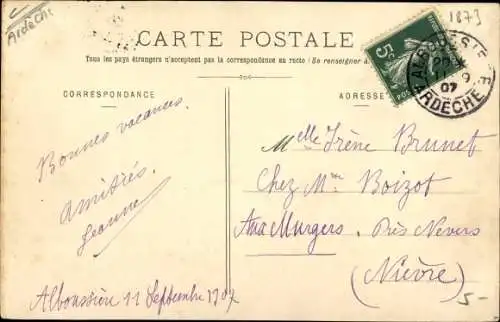 Ardèche
1873
CARTE POSTALE
Tous les pays étrangers n'acceptent pas la correspondance au recto (Se renseigner à
CORRESPONDANCE
ADRESSE
5c
POSTES
11 9
07
ARDÈCHE
Bonnes vacances.
Amitiés.
Jeanne
Alboussière 11 Septembre 1907
Melle Irène Brunet
Chez Mme Boizot
Aux Murgers, Près Nevers
(Nièvre)
5-